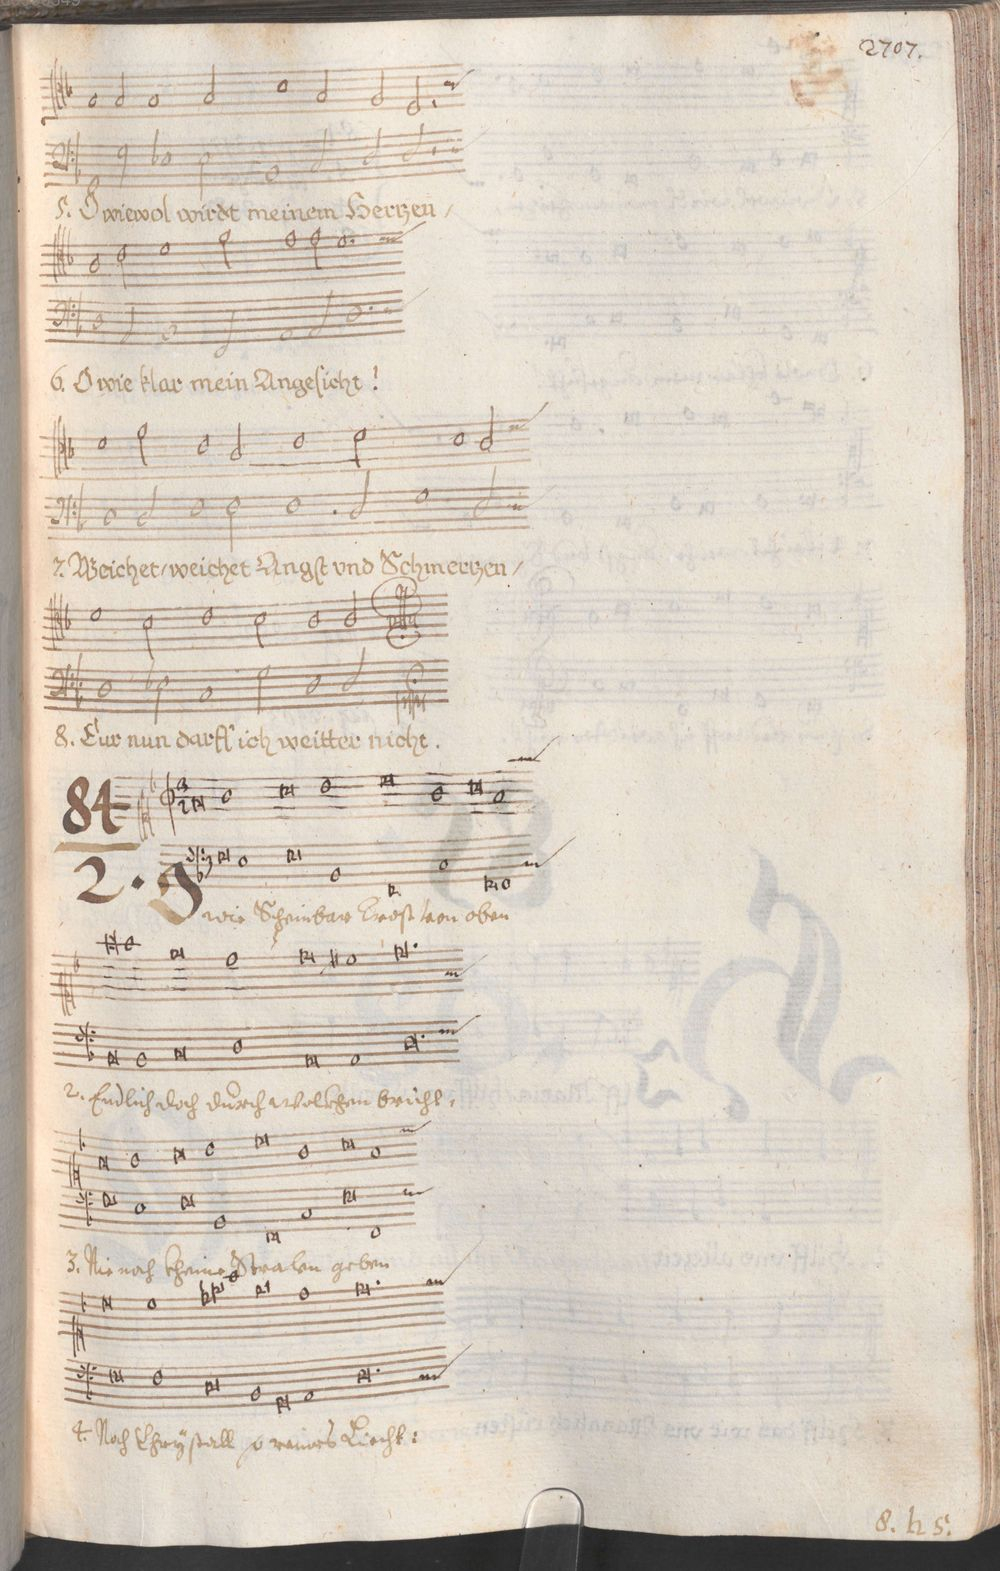 2707.
5. O wiewol wirdt meinem Hertzen /
6. O wie klar mein Angesicht !
7. Weichet / weichet Angst vnd Schmertzen /
8. Eur nun darff ich weitter nicht .
84
2. O wie Scheinbar Trost von oben
2. Endlich doch durch wolckhen bricht,
3. Nie noch kheine Stralen geben
4. Noch Chrystall so raines Liecht:
8. h 5.